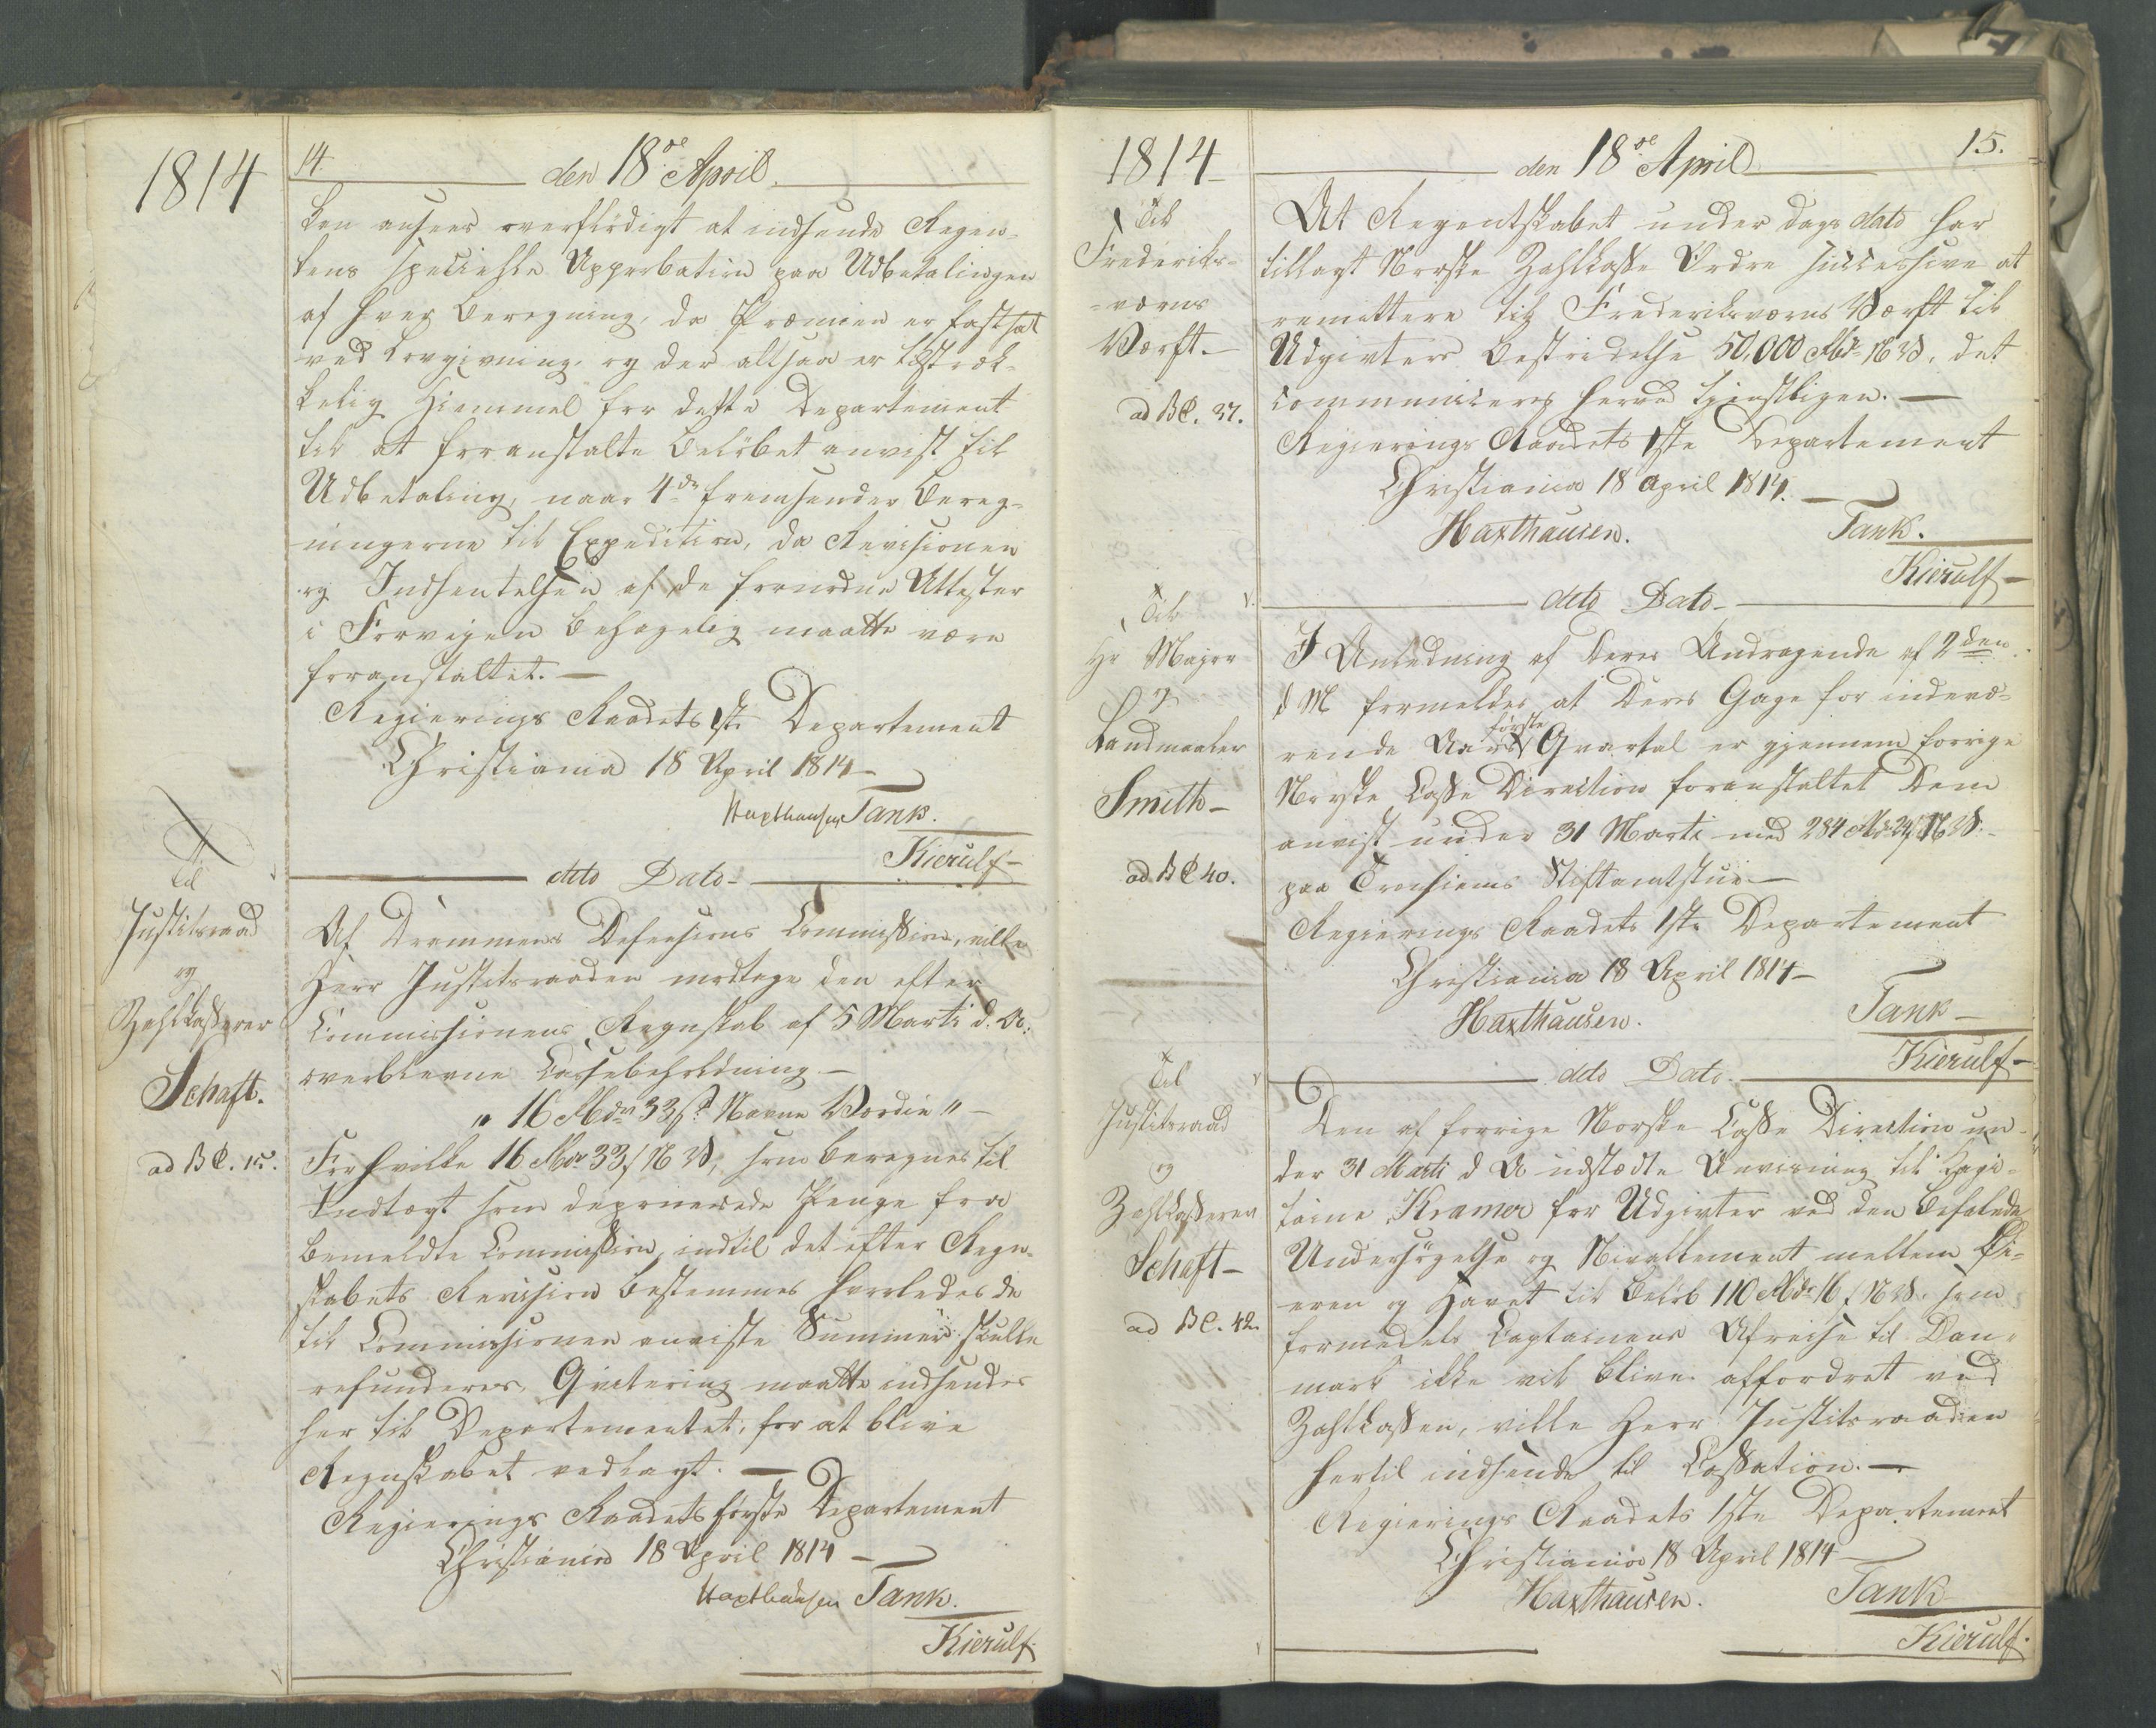 1814
14.
den 18de April
ken ansees overflødigt at indhente Regen-
tens specielle Approbation paa Udbetalingen
af hver Beregning, da Præmien er fastsat
ved Lovgivning, og der altsaa er tilstræk-
kelig Hiemmel for dette Departement
til at foranstalte Beløbet anvist til
Udbetaling, naar 4de fremsender Bereg-
ningerne til Expedition, da Revisionen
og Indhentelsen af de fornødne Attester
i Forveien behagelig maatte være
foranstaltet. —
Regierings Raadets 1ste Departement
Christiania 18 April 1814 —
Haxthausen Tank.
Kierulf —
dito Dato —
Til
Justitsraad
og
Zahlkasserer
Schaft.
ad B C. 15.
Af Drammens Defensions Commission, ville
Herr Justitsraaden modtage den efter
Commissionens Regnskab af 5 Marti d. A:
overblevne Cassebeholdning —
" 16 Rbdr 33 s. Navne Værdie " —
For hvilke 16 Rbdr 33 s N V, som beregnes til
Indtægt som deponerede Penge fra
bemeldte Commission, indtil det efter Regn-
skabets Revision bestemmes hvorledes de
til Commissionen anviste Summer skulle
refunderes, Qvitering maatte indsendes
her til Departementet, for at blive
Regnskabet vedlagt. —
Regierings Raadets første Departement
Christiania 18 April 1814 —
Haxthausen Tank.
Kierulf.
1814
15.
den 18de April
Til
Frederiks-
-værns
Værft. —
ad B C. 37.
At Regentskabet under dags dato har
tillagt Norske Zahlkasse Ordre successive at
remittere til Frederiksværns Værft til
Udgivters Bestridelse 50,000 Rbdr N V, det
communiceres herved tjenstligen. —
Regierings Raadets 1ste Departement
Christiania 18 April 1814. —
Haxthausen. Tank.
Kierulf —
dito Dato —
Til
Hr Major
og
Landmaaler
Smith —
ad B C 40.
I Anledning af Deres Andragende af 2den
d M formeldes at Deres Gage for indevæ-
rende Aars første Qvartal er gjennem forrige
Norske Casse Direction foranstaltet Dem
anvist under 31 Marti med 284 Rbdr 24 s N V. —
paa Tronhiems Stiftamtstue —
Regierings Raadets 1ste Departement
Christiania 18 April 1814 —
Haxthausen. Tank —
Kierulf —
dito Dato —
Til
Justitsraad
og
Zahlkasseren
Schaft —
ad B C. 42.
Den af forrige Norske Casse Direction un-
der 31 Marti d A udstædte Anvisning til Capi-
taine Kramer for Udgivter ved den befalede
Undersøgelse og Nivellement mellem Øi-
eren og Havet til Beløb 110 Rbdr 16 s N V. som
formedelst Captainens Afreise til Dan-
mark ikke vil blive affordret ved
Zahlkassen, ville Herr Justitsraaden
hertil indsende til Cassation. —
Regierings Raadets 1ste Departement
Christiania 18 April 1814 —
Haxthausen. Tank
Kierulf.